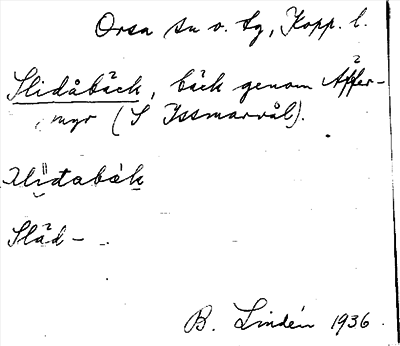 Orsa sn o. tg, Kopp. l.
Slidåbäck, bäck genom
myr (S Issmarvål).
Slåd-
B. Lindén 1936